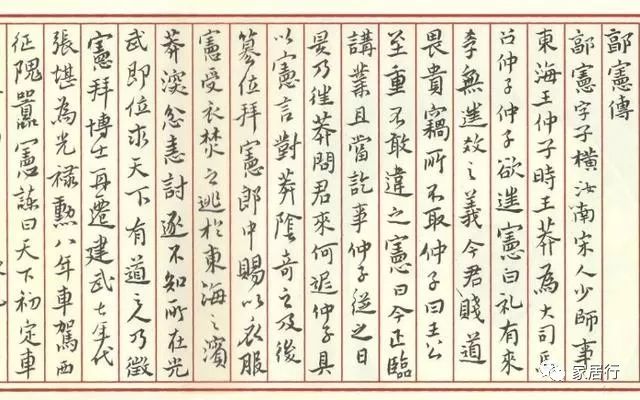 郭憲傳
郭憲字子橫汝南宋人少師事
東海王仲子時王莽為大司馬
召仲子仲子欲進憲曰礼有來
學無進教之義今君賤道
畏貴竊所不取仲子曰王公
至重不敢違之憲曰今正臨
講業且當訖事仲子從之日
晏乃往莽問君來何遲仲子具
以憲言對莽陰奇之及後
篡位拜憲郎中賜以衣服
憲受衣焚之逃於東海之濱
莽深忿恚討逐不知所在光
武即位求天下有道之人乃徵
憲拜博士再遷建武七年代
張堪為光祿勳八年車駕西
征隗囂憲諫曰天下初定車
家居行